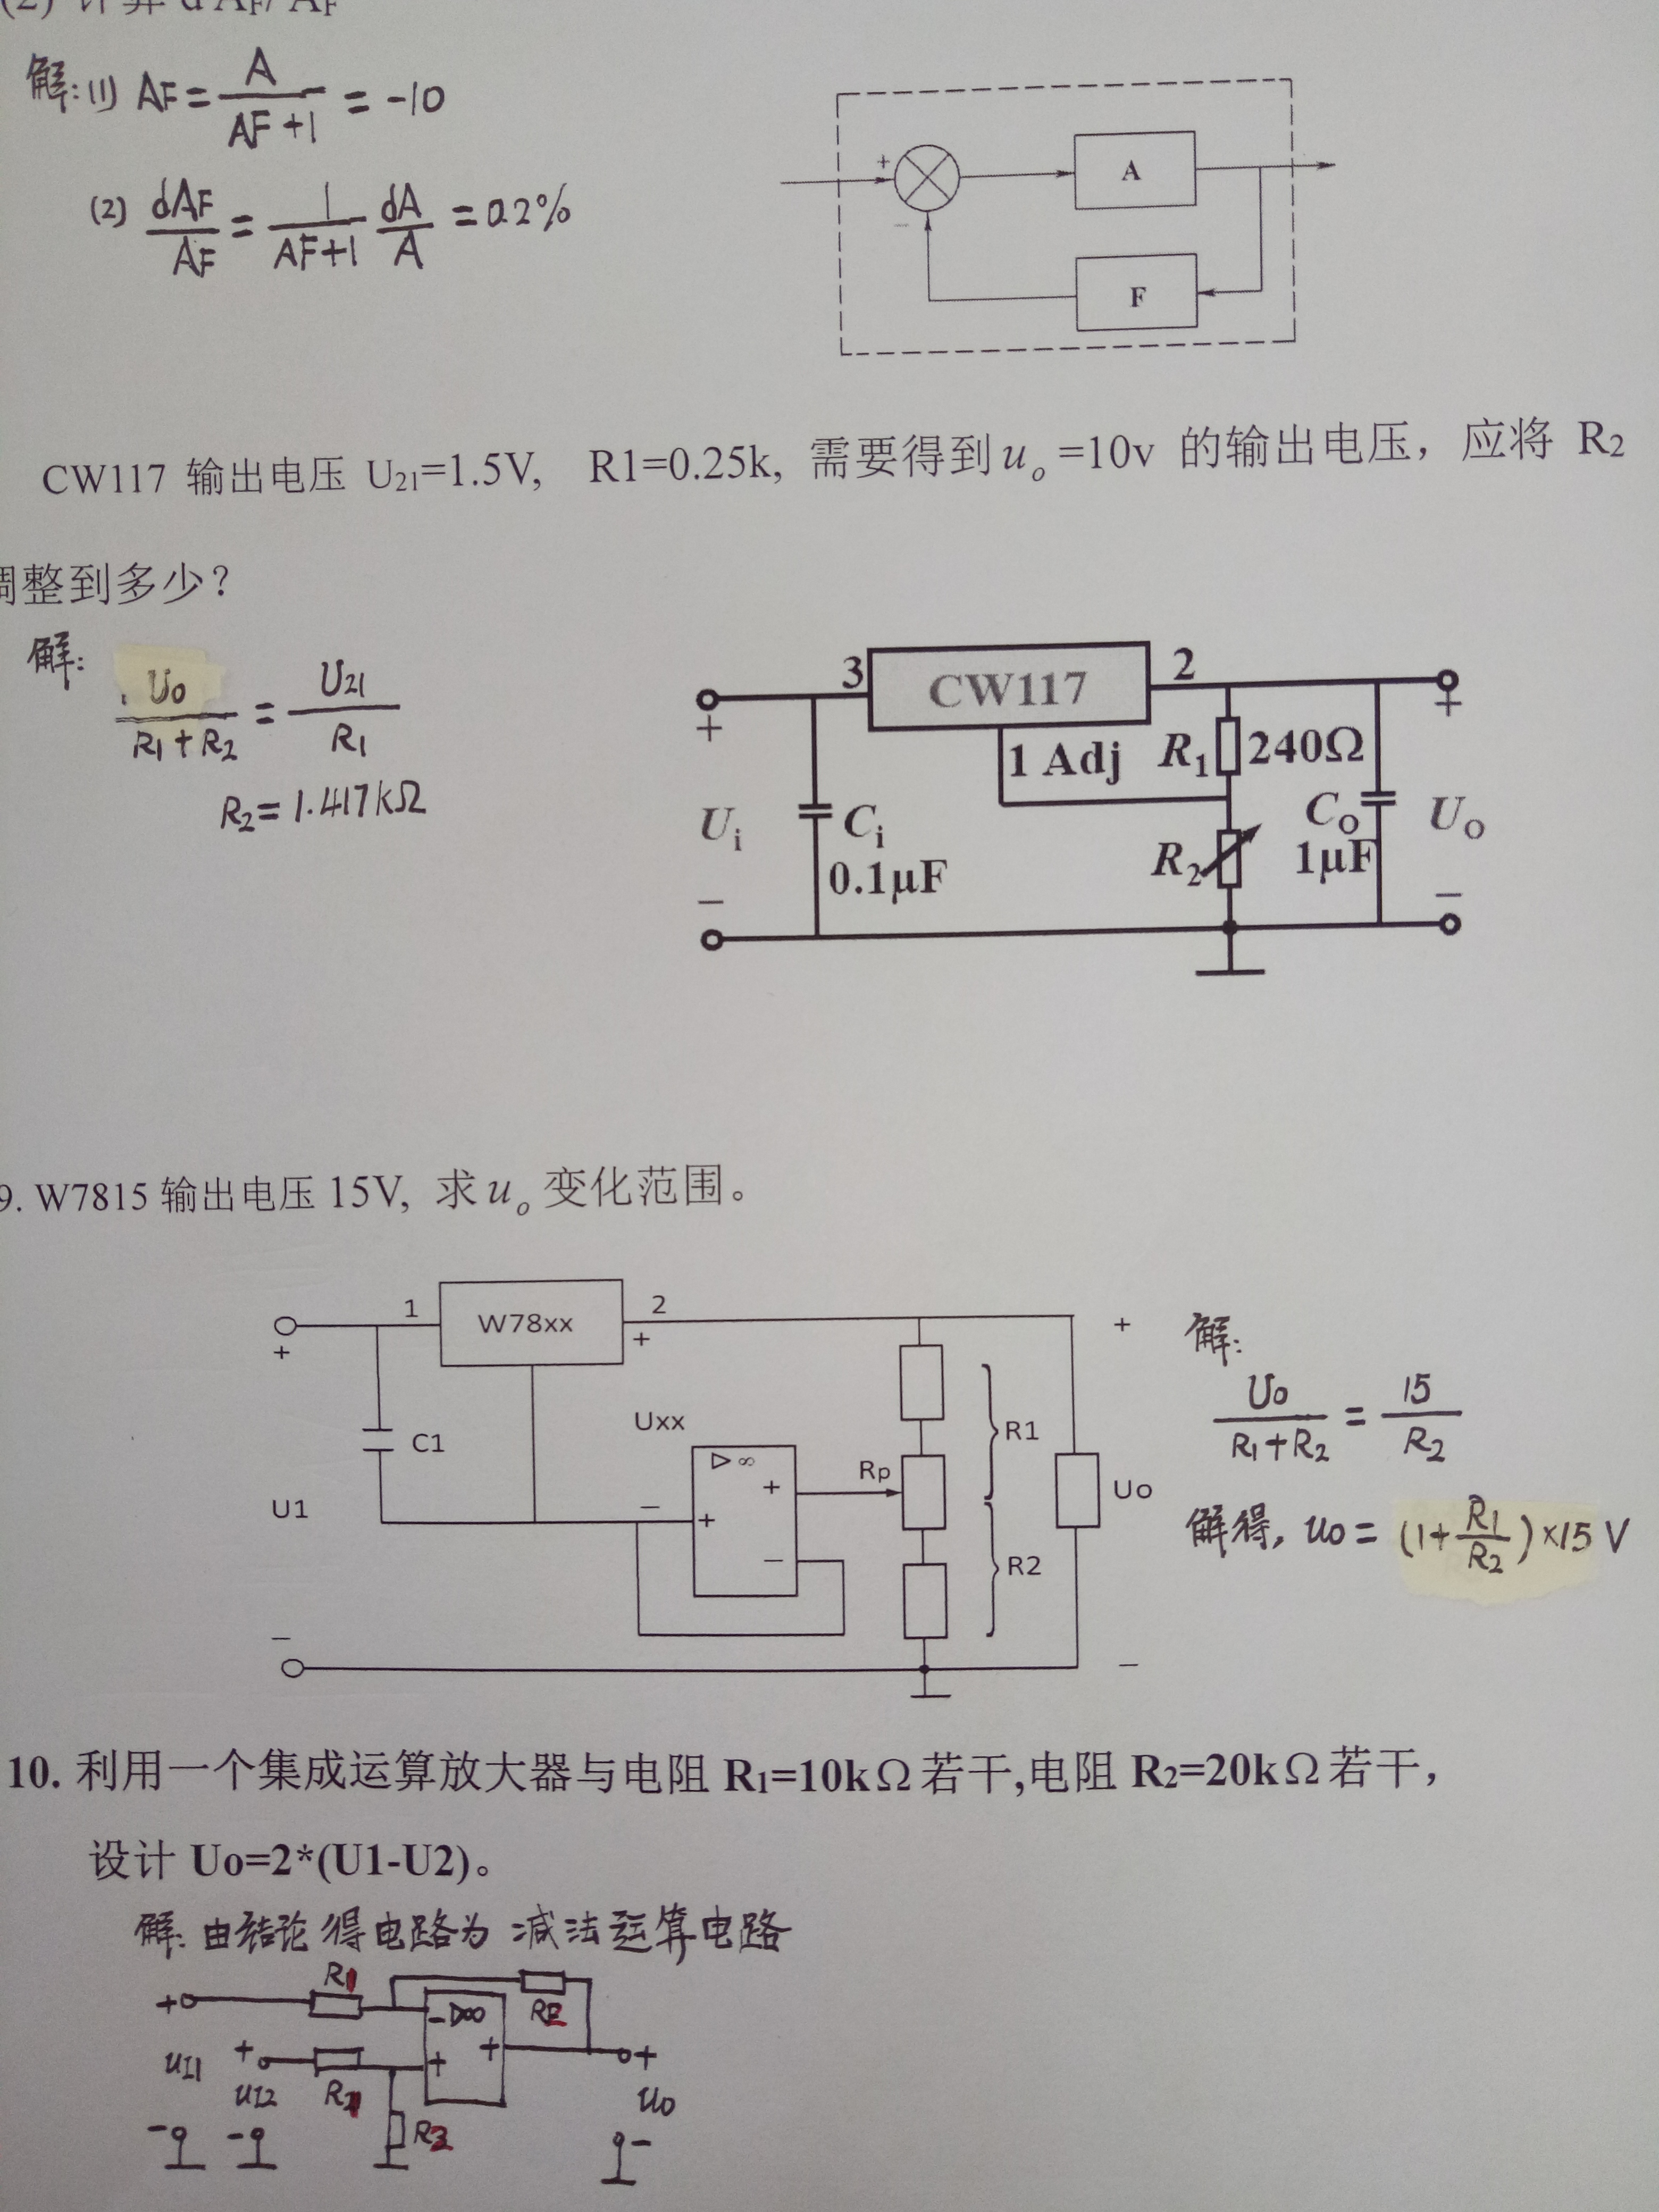 (2) 计算 d AF/ AF
解:(1) AF = A / AF+1 = -10
(2) dAF / AF = 1 / AF+1 dA / A = 0.2%
+
A
−
F
CW117 输出电压 U21=1.5V, R1=0.25k, 需要得到 uo =10v 的输出电压，应将 R2
调整到多少？
解:
Uo / R1+R2 = U21 / R1
R2 = 1.417kΩ
3
CW117
2
+
+
1 Adj
R1
240Ω
Ui
Ci
0.1μF
R2
Co
1μF
Uo
−
−
9. W7815 输出电压 15V, 求 uo 变化范围。
1
W78xx
2
+
+
+
C1
Uxx
▷∞
+
Rp
R1
U1
−
+
−
R2
Uo
−
−
解:
Uo / R1+R2 = 15 / R2
解得, uo = (1+ R1 / R2 )×15 V
10. 利用一个集成运算放大器与电阻 R1=10kΩ 若干,电阻 R2=20kΩ 若干，
设计 Uo=2*(U1-U2)。
解: 由结论 得电路为 减法运算电路
R1
+
- ▷∞
R2
uI1
+
uI2
+
+
+
R1
uo
-
-
R2
-